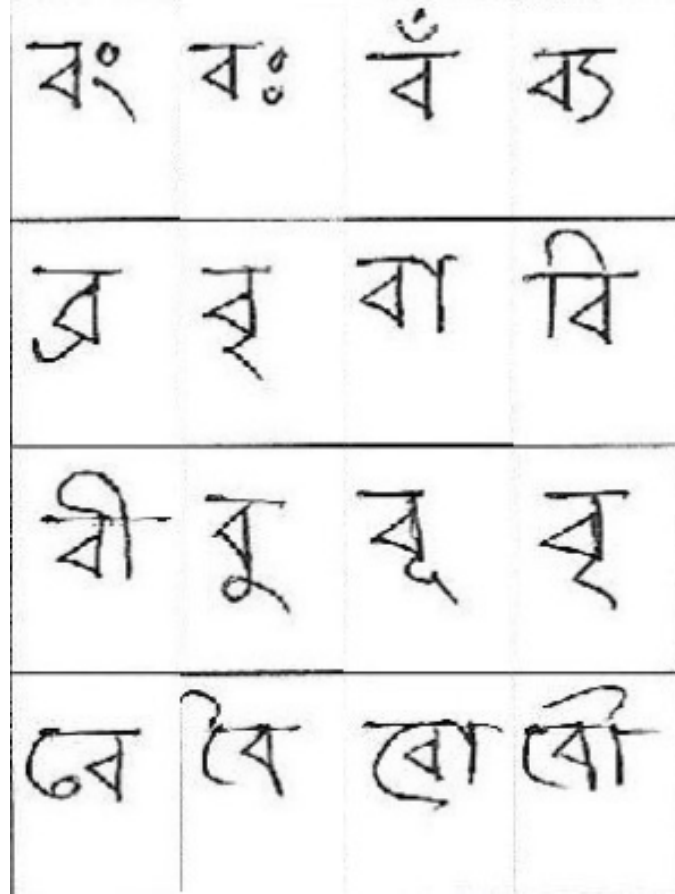 বং বঃ বঁ ব্য
ব্র বৃ বা বি
বী বু বূ বৃ
বে বৈ বো বৌ